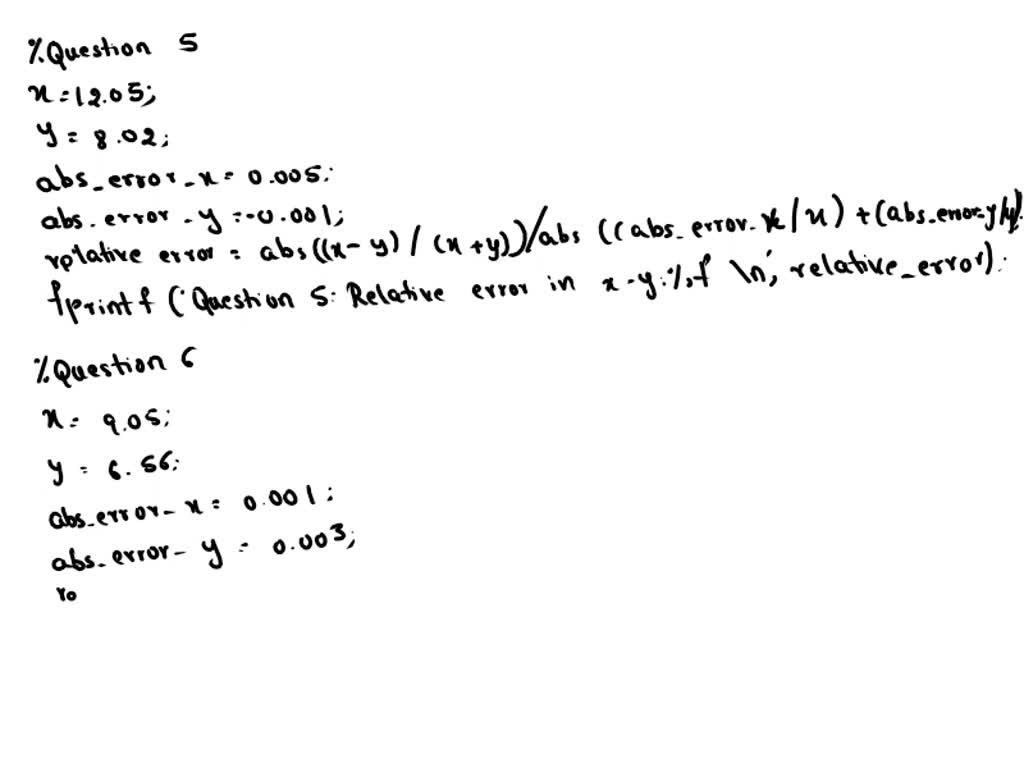 %Question 5
x=12.05;
y = 8.02;
abs_error_x = 0.005;
abs_error_y = -0.001;
relative error = abs((x-y)/(x+y))/abs((abs_error_x/x)+(abs_error_y/y));
fprintf('Question 5: Relative error in x-y:%f \n', relative_error);
%Question 6
x = 9.05;
y = 6.56;
abs_error_x = 0.001;
abs_error_y = 0.003;
ro